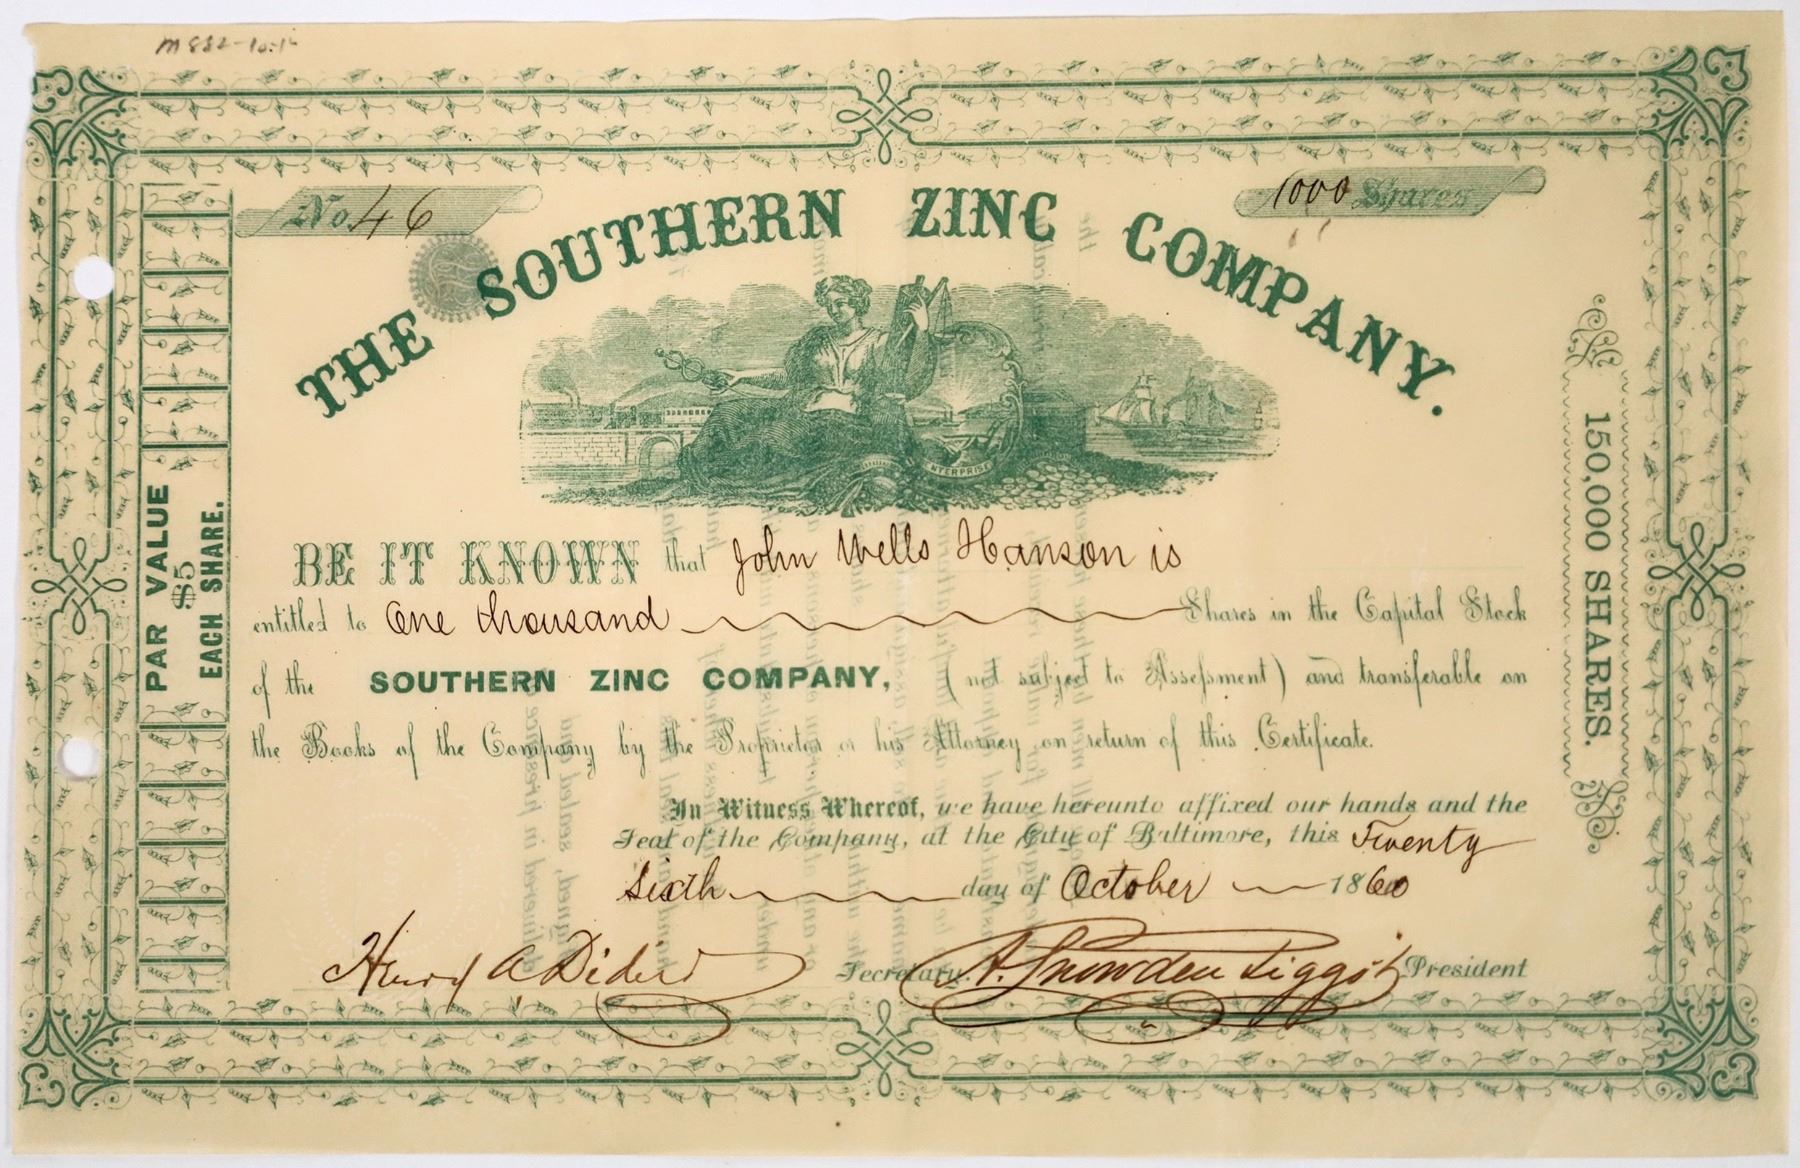 M882-10-1
No. 46
1000 Shares
THE SOUTHERN ZINC COMPANY.
ENTERPRISE
PAR VALUE
$5
EACH SHARE.
150,000 SHARES.
BE IT KNOWN that John Wells Hanson is
entitled to One thousand Shares in the Capital Stock
of the SOUTHERN ZINC COMPANY, (not subject to Assessment) and transferable on
the Books of the Company by the Proprietor or his Attorney on return of this Certificate.
In Witness Whereof, we have hereunto affixed our hands and the
Seal of the Company, at the City of Baltimore, this Twenty
sixth day of October 1860
Henry A Didier Secretary. A. Snowden Piggot President